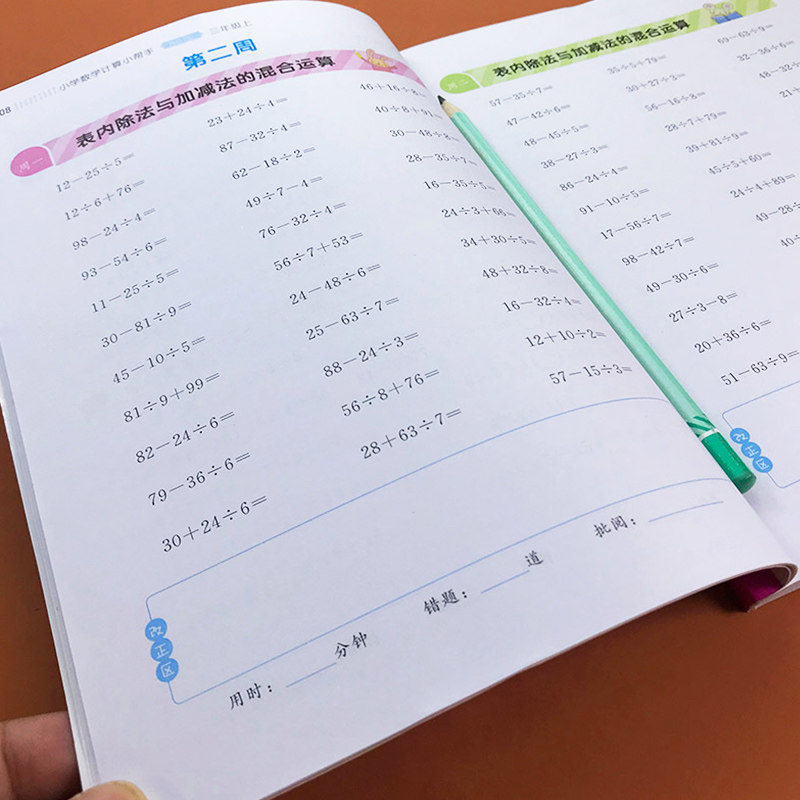 08 小学数学计算小帮手 三年级上
第二周
表内除法与加减法的混合运算
周一
12－25÷5＝
12÷6＋76＝
98－24÷4＝
93－54÷6＝
11－25÷5＝
30－81÷9＝
45－10÷5＝
81÷9＋99＝
82－24÷6＝
79－36÷6＝
30＋24÷6＝
23＋24÷4＝
87－32÷4＝
62－18÷2＝
49÷7－4＝
76－32÷4＝
56÷7＋53＝
24－48÷6＝
25－63÷7＝
88－24÷3＝
56÷8＋76＝
28＋63÷7＝
46＋16÷8＝
40÷8＋91＝
30－48÷8＝
28－35÷7＝
16－35÷5＝
24÷3＋66＝
34＋30÷5＝
48＋32÷8＝
16－32÷4＝
12＋10÷2＝
57－15÷3＝
改正区
用时：
分钟
错题：
道
批阅：
表内除法与加减法的混合运算
57－35÷7＝
47－42÷6＝
48－45÷5＝
38－27÷3＝
86－24÷4＝
91－10÷5＝
17－56÷7＝
98－42÷7＝
49－30÷6＝
27÷3－8＝
20＋36÷6＝
51－63÷9＝
35÷5＋79＝
30＋27÷3＝
56－16÷8＝
28÷7＋79＝
39＋81÷9＝
45÷5＋60＝
24÷4＋89＝
49－28÷
40÷
69－63÷9＝
32－36÷6＝
48－32÷
21＋
改正区